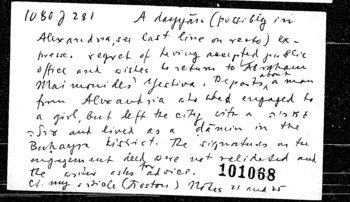 1080 J 281 A dayyān (possibly in
Alexandria, see last line on recto) ex-
presses regret of having accepted public
office and wishes to return to Abraham
Maimonides' Yeshiva. Reports about a man
from Alexandria who had engaged to
a girl, but left the city with a
and lived as a in the
Buhayra District. The signatures on the
engagement deed were not validated and
the writer asks for advice. 101068
Cf. my article (Trostom) Notes 21 and 25